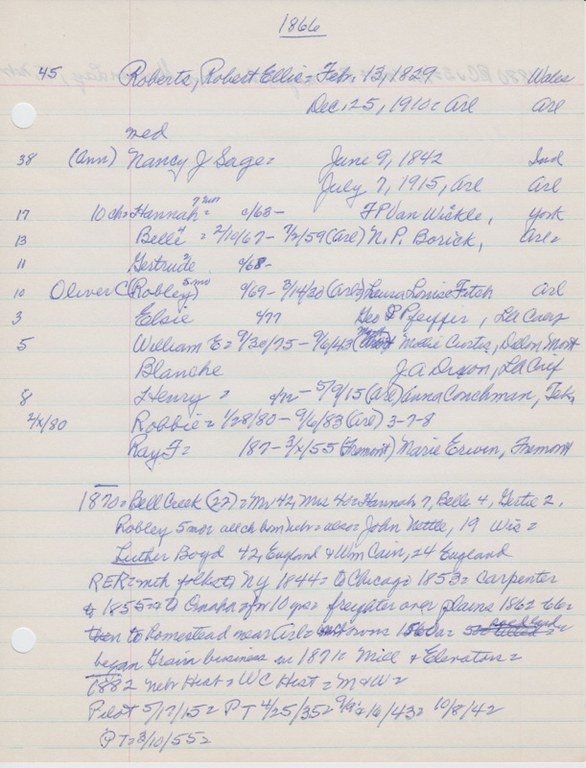 1866
45 Roberts, Robert Ellis = Feb. 13, 1829 Wales
Dec. 25, 1910 = Arl Arl
med
38 (Ann) Nancy J Sage = June 9, 1842 Ind
July 7, 1915, Arl Arl
17 10 ch = Hannah = 9/63 - F P Van Wickle, York
13 Belle = 2/10/67 - 7/2/59 (Arl) N. P. Borick, Arl =
11 Gertrude 9/68 -
10 Oliver C (Robley) 5 mo 9/69 - 3/14/20 (Arl) Laura Louise Fitch Arl
3 Elsie 4/77 Geo Pfeiffer, La Cros
5 William E = 9/30/75 - 9/6/43 Marie Curtis, Mont
Blanche J. A. Dixon, La Crix
8 Henry = - 5/9/15 (Arl) Anna Conchman, Tek
2/x/80 Robbie = 1/28/80 - 9/6/83 (Arl) 3-7-8
Ray F = 187 - 3/x/55 (Fremont) Marie Erwin, Fremont
1870 = Bell Creek (22) = Mr 42, Mrs 40 = Hannah 7, Belle 4, Gertie 2,
Robley 5 mos all ch born Nebr = also = John Nettle, 19 Wis =
Luther Boyd 42, England & Wm Cain, 24 England
RER = with folks to NY 1844 = to Chicago 1853 = carpenter
& 1855 = to Omaha = fm 10 mos = freighter over plains 1862
to homestead near Arl = now
began Grain business in 1871 = Mill & Elevator =
1882 Nebr Hist = W C Hist = M & W =
Pilot 5/17/15 = P T 4/25/35 = 9/9 = 16/43 = 10/8/42
P T = 3/10/55 =